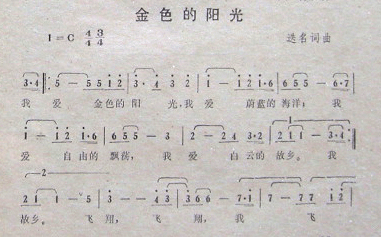 金色的阳光
1=C 4/4 3/4 迭名词曲
3·4 5 — 5 5 1 2 3·4 3 2 1 — 1 2 1·6 6 5 5 — 6·7
我 爱 金色的 阳 光,我 爱 蔚蓝的 海洋; 我
1 — 1 2 1·6 5 5 — 3 2 — 2 4 3·2 2 1 1 — 3·4
爱 自由的 飘荡, 我 爱 白云的 故乡。 我
2 1 1 — 5 3 — — 4 3 3 6 6 — 7·1 7 — 7 7 1 2
故乡。 飞 翔, 飞 翔,我 飞